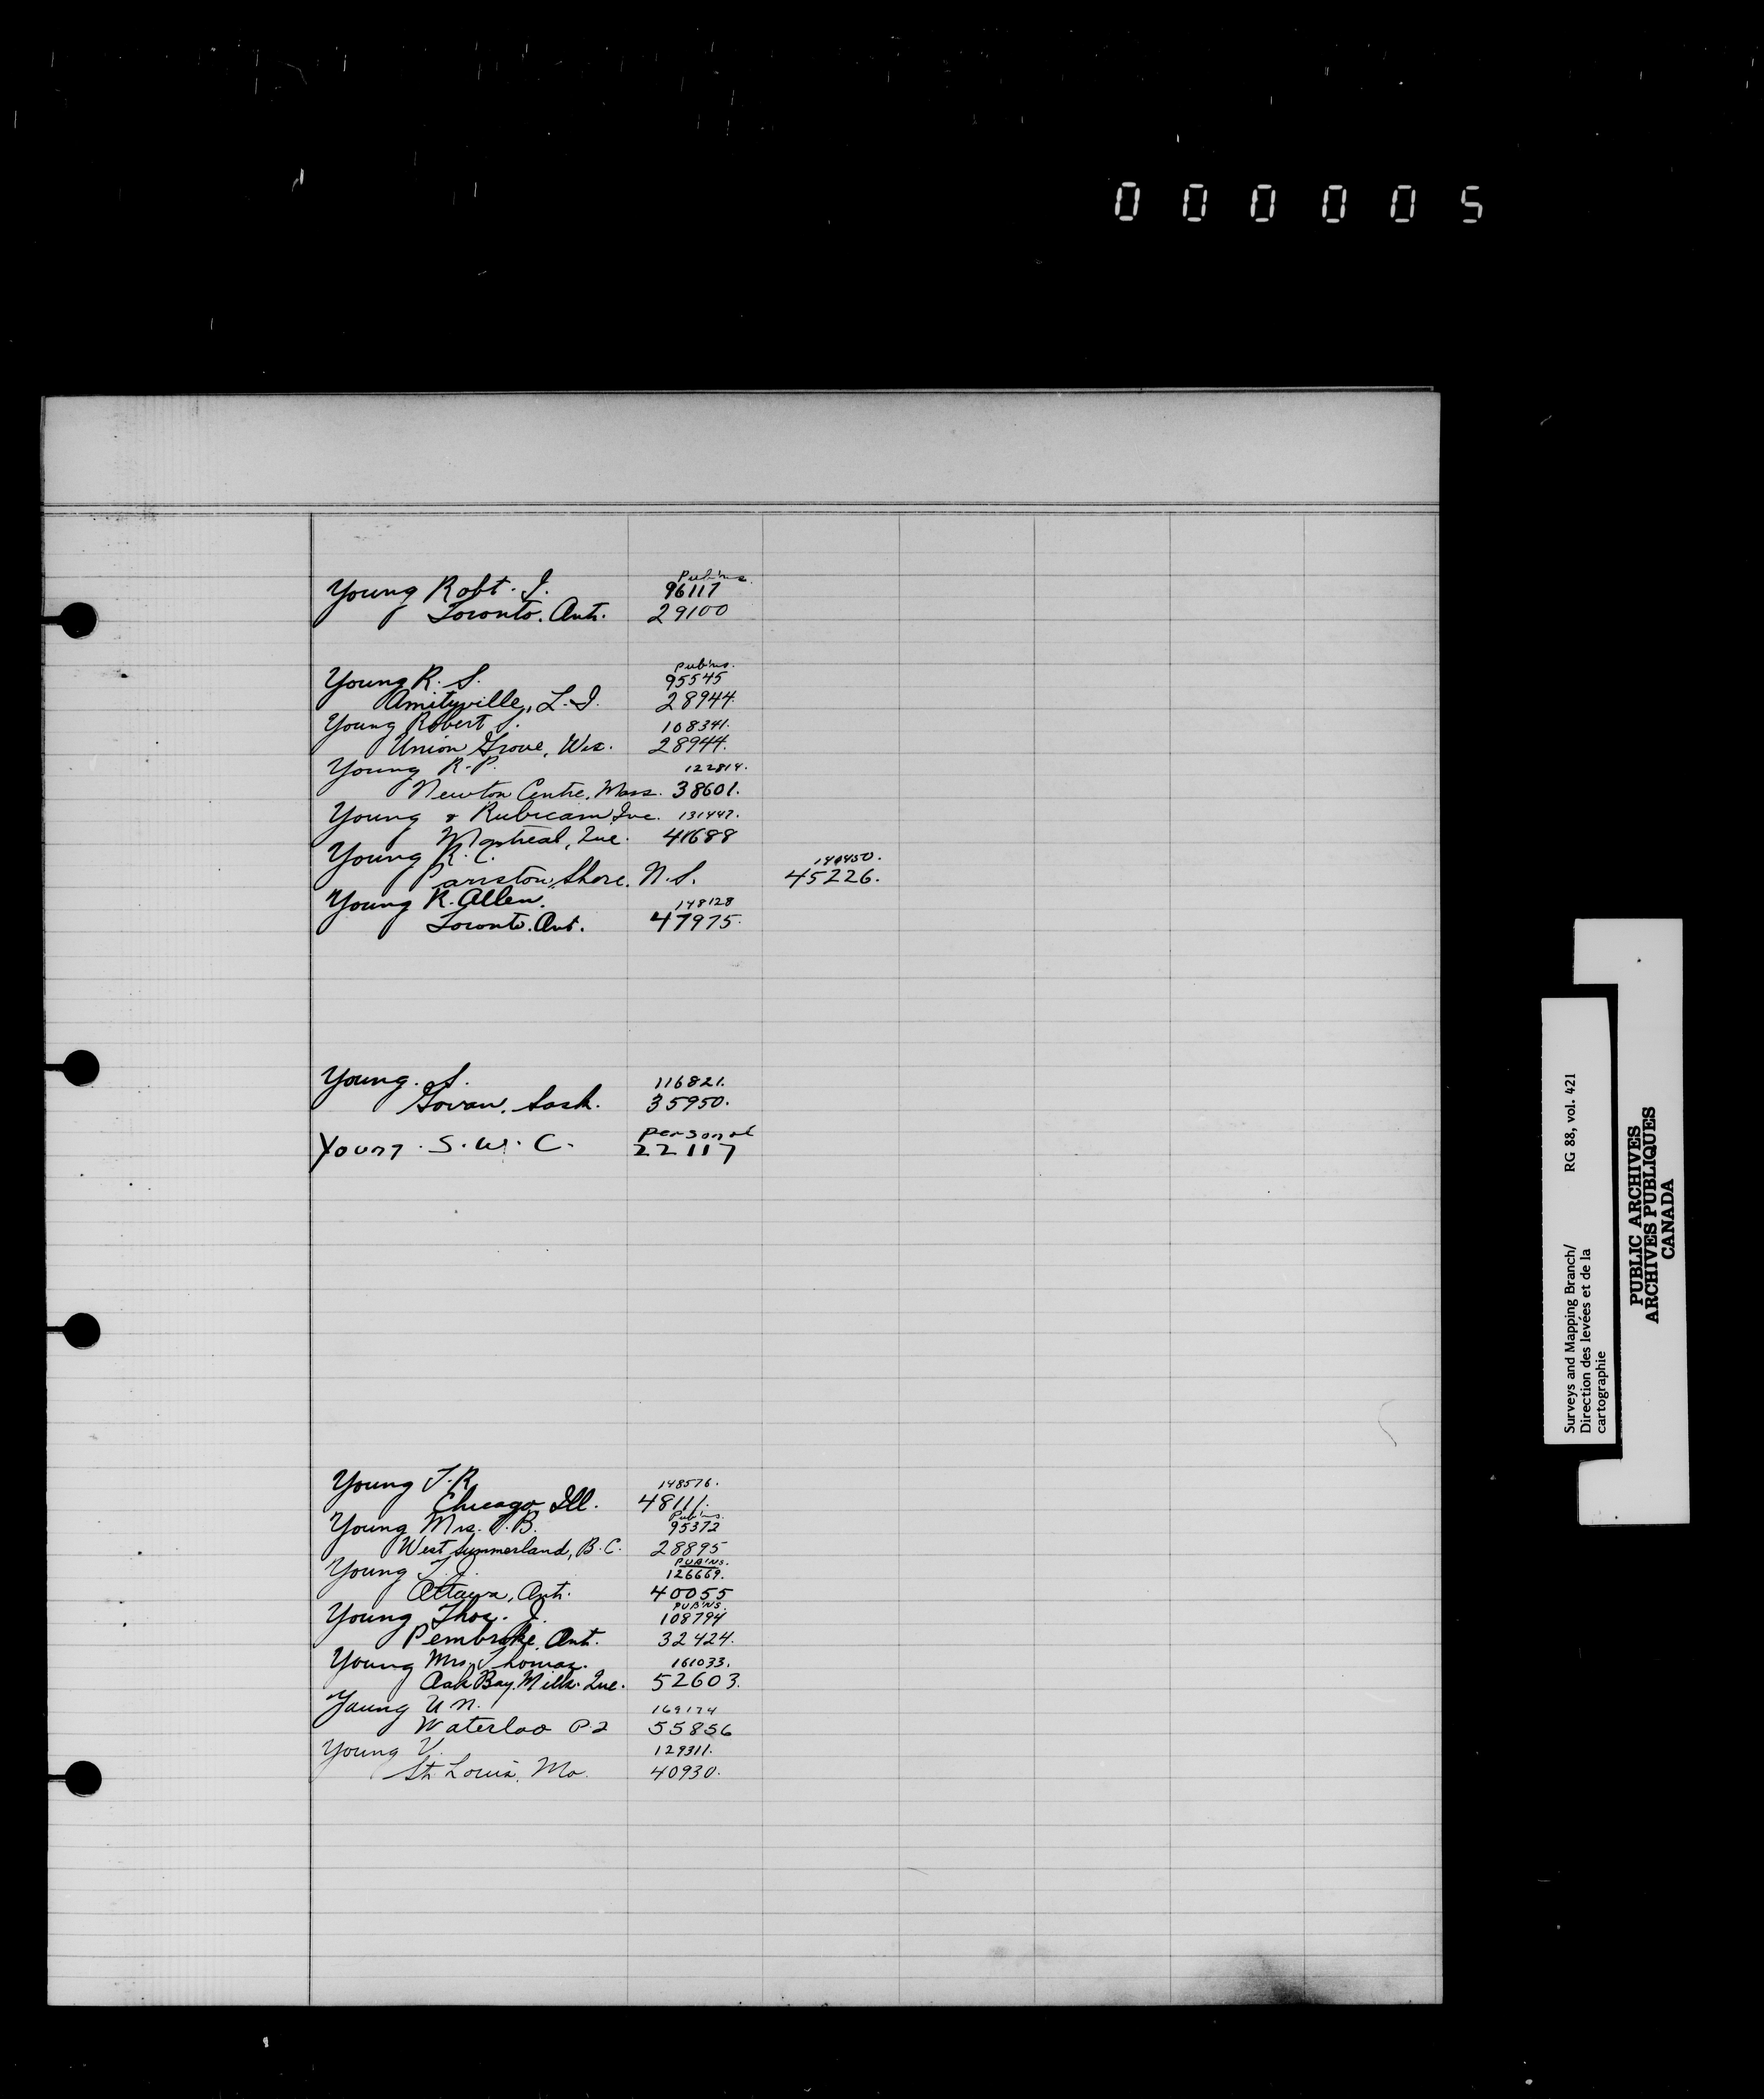 000005
Pub'ns.
Young Robt. J. 96117
Toronto. Ont. 29100
Pub'ns.
Young R. S. 95545
Amityville, L.I. 28944.
Young Robert S. 108341.
Union Grove, Wis. 28944.
Young R.P. 122814.
Newton Centre, Mass. 38601.
Young & Rubicam Inc. 131447.
Montreal, Que. 41688
Young R.C. 140450.
Shore, N.S. 45226.
Young R. Allen. 148128
Toronto. Ont. 47975.
Young. S. 116821.
Govan, Sask. 35950.
Personal
Young. S. W. C. 22117
Young T.R. 148576.
Chicago Ill. 48111.
Pub'ns.
Young Mrs. T.B. 95372
West Summerland, B.C. 28895
PUB'NS.
Young T.J. 126669.
Ottawa, Ont. 40055
PUB'NS.
Young Thos. J. 108794
Pembroke, Ont. 32424.
Young Mrs. Thomas. 161033.
Oak Bay Mills. Que. 52603.
Young U N. 169174
Waterloo P.Q 55856
Young V. 129311.
St. Louis, Mo. 40930.
Surveys and Mapping Branch/ RG 88, vol. 421
Direction des levées et de la
cartographie
PUBLIC ARCHIVES
ARCHIVES PUBLIQUES
CANADA